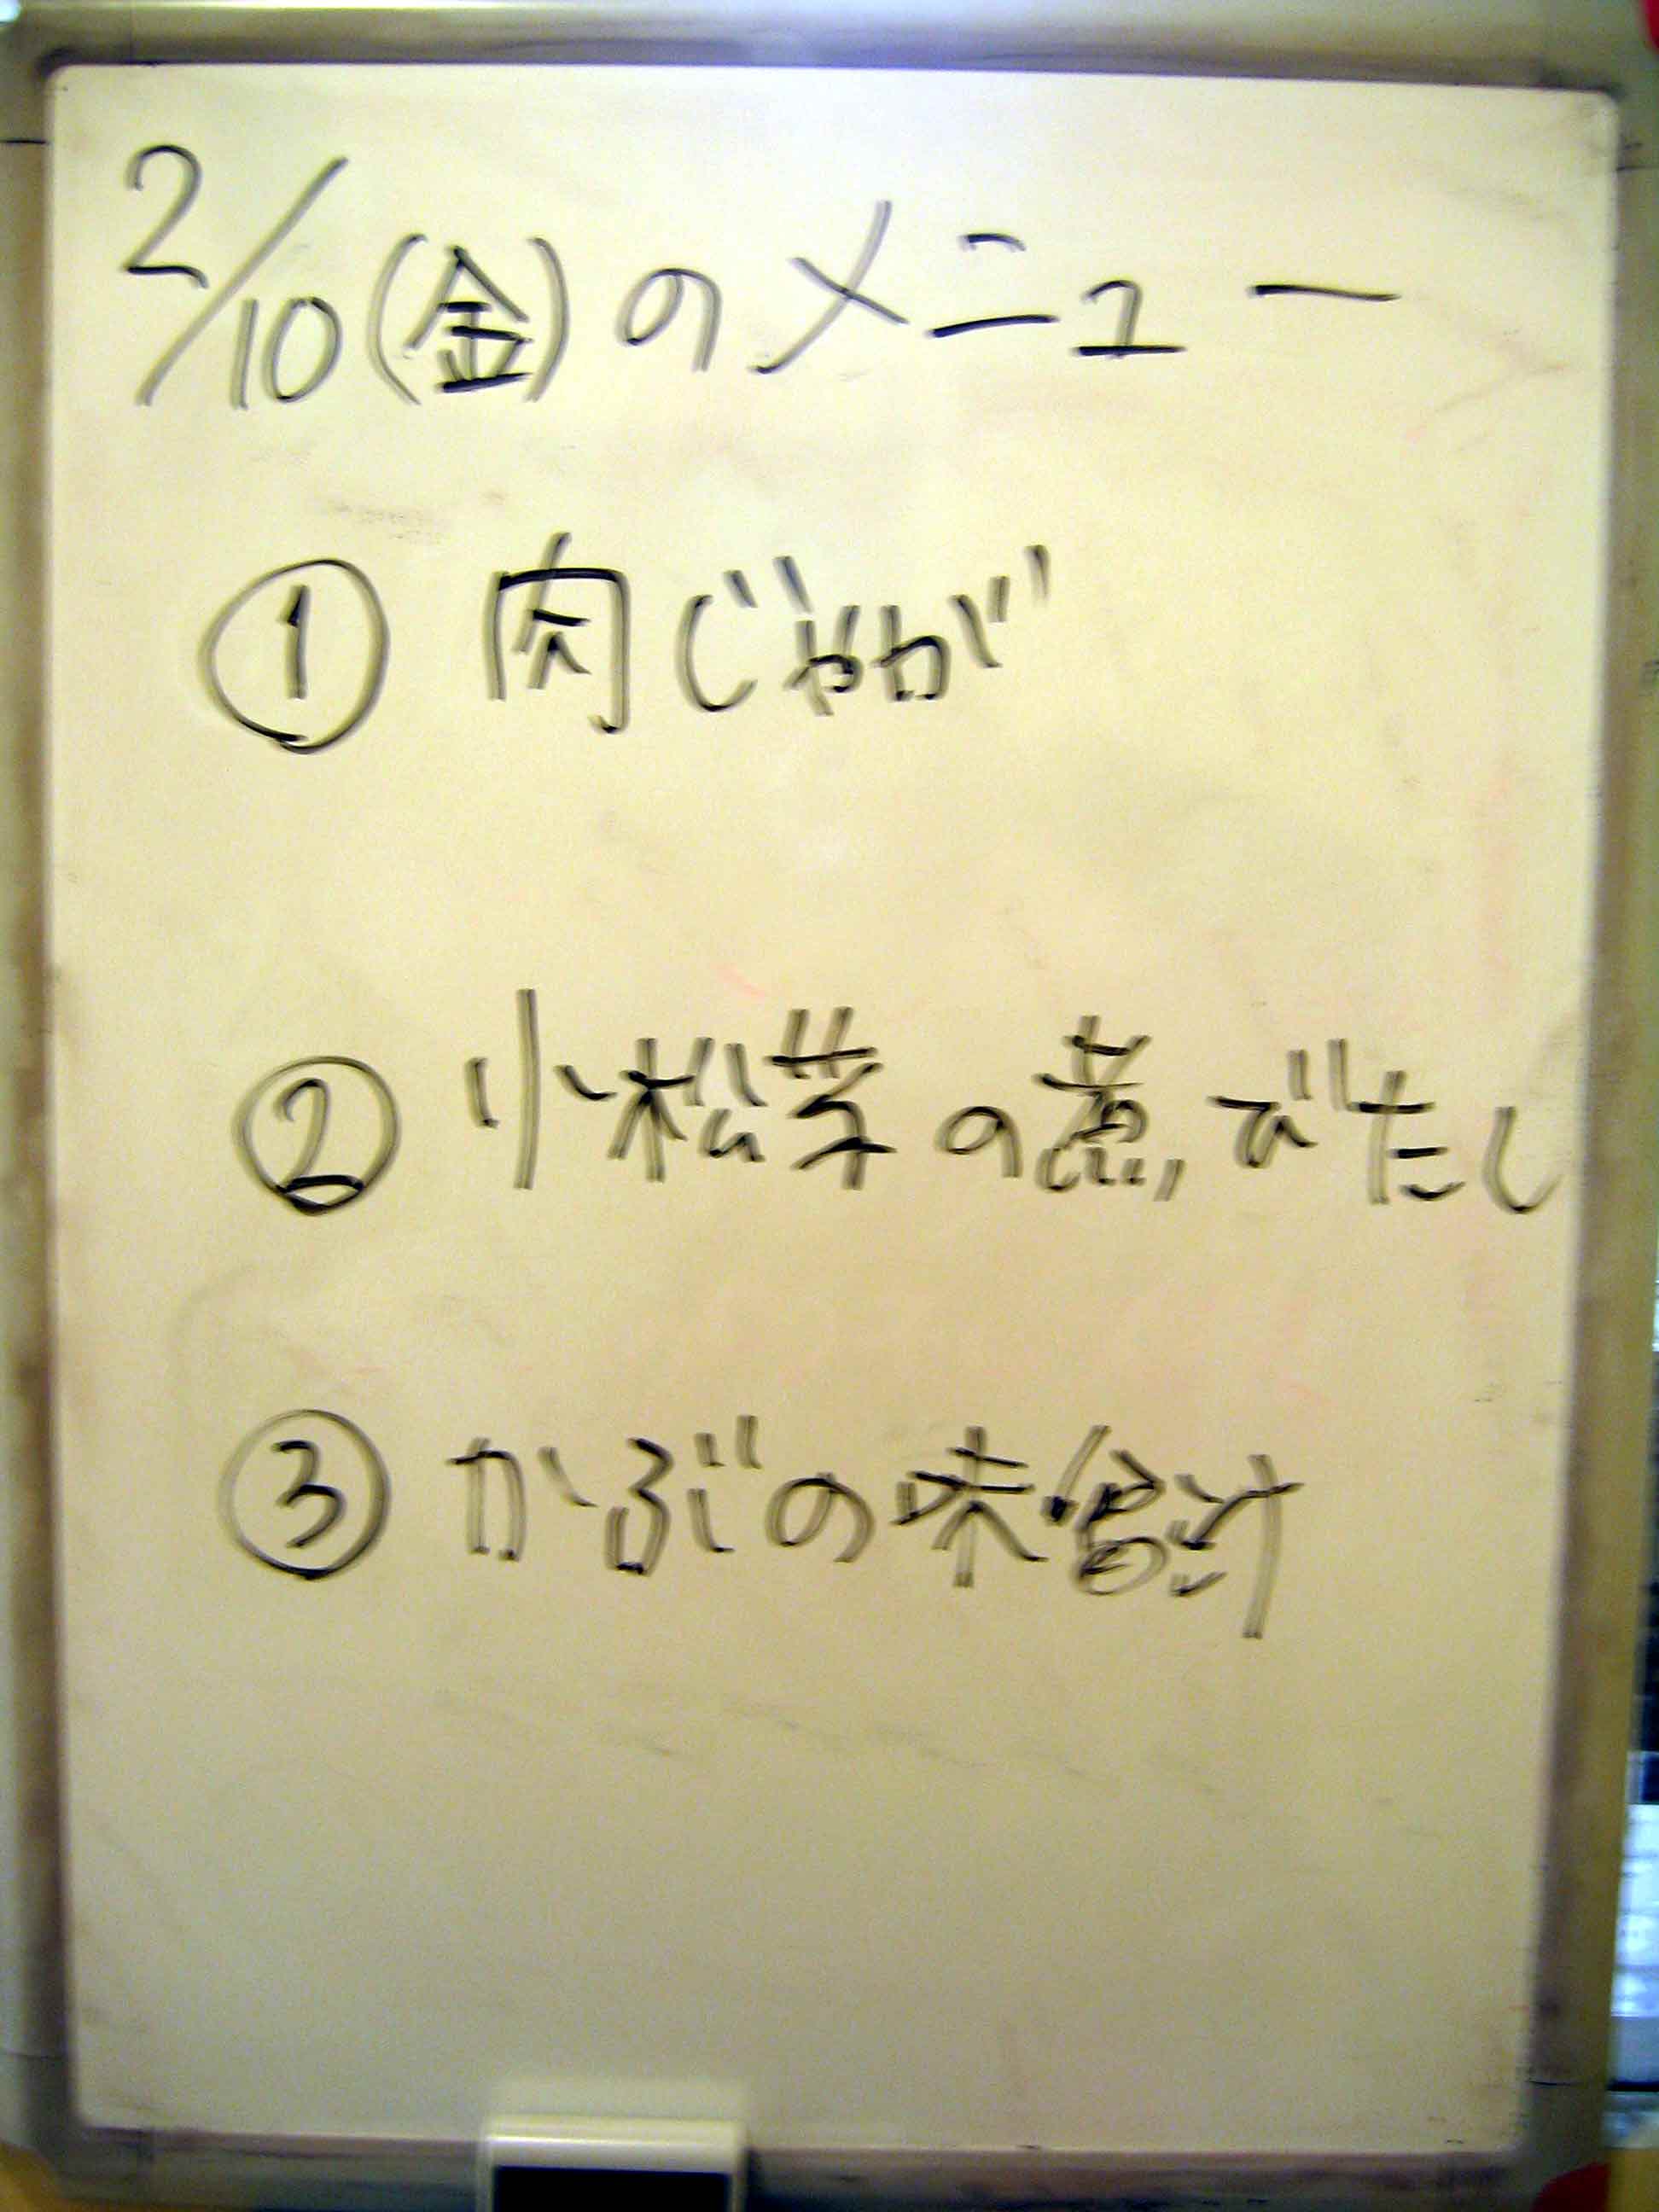 2/10(金)のメニュー
① 肉じゃが
② 小松菜の煮びたし
③ かぶの味噌汁